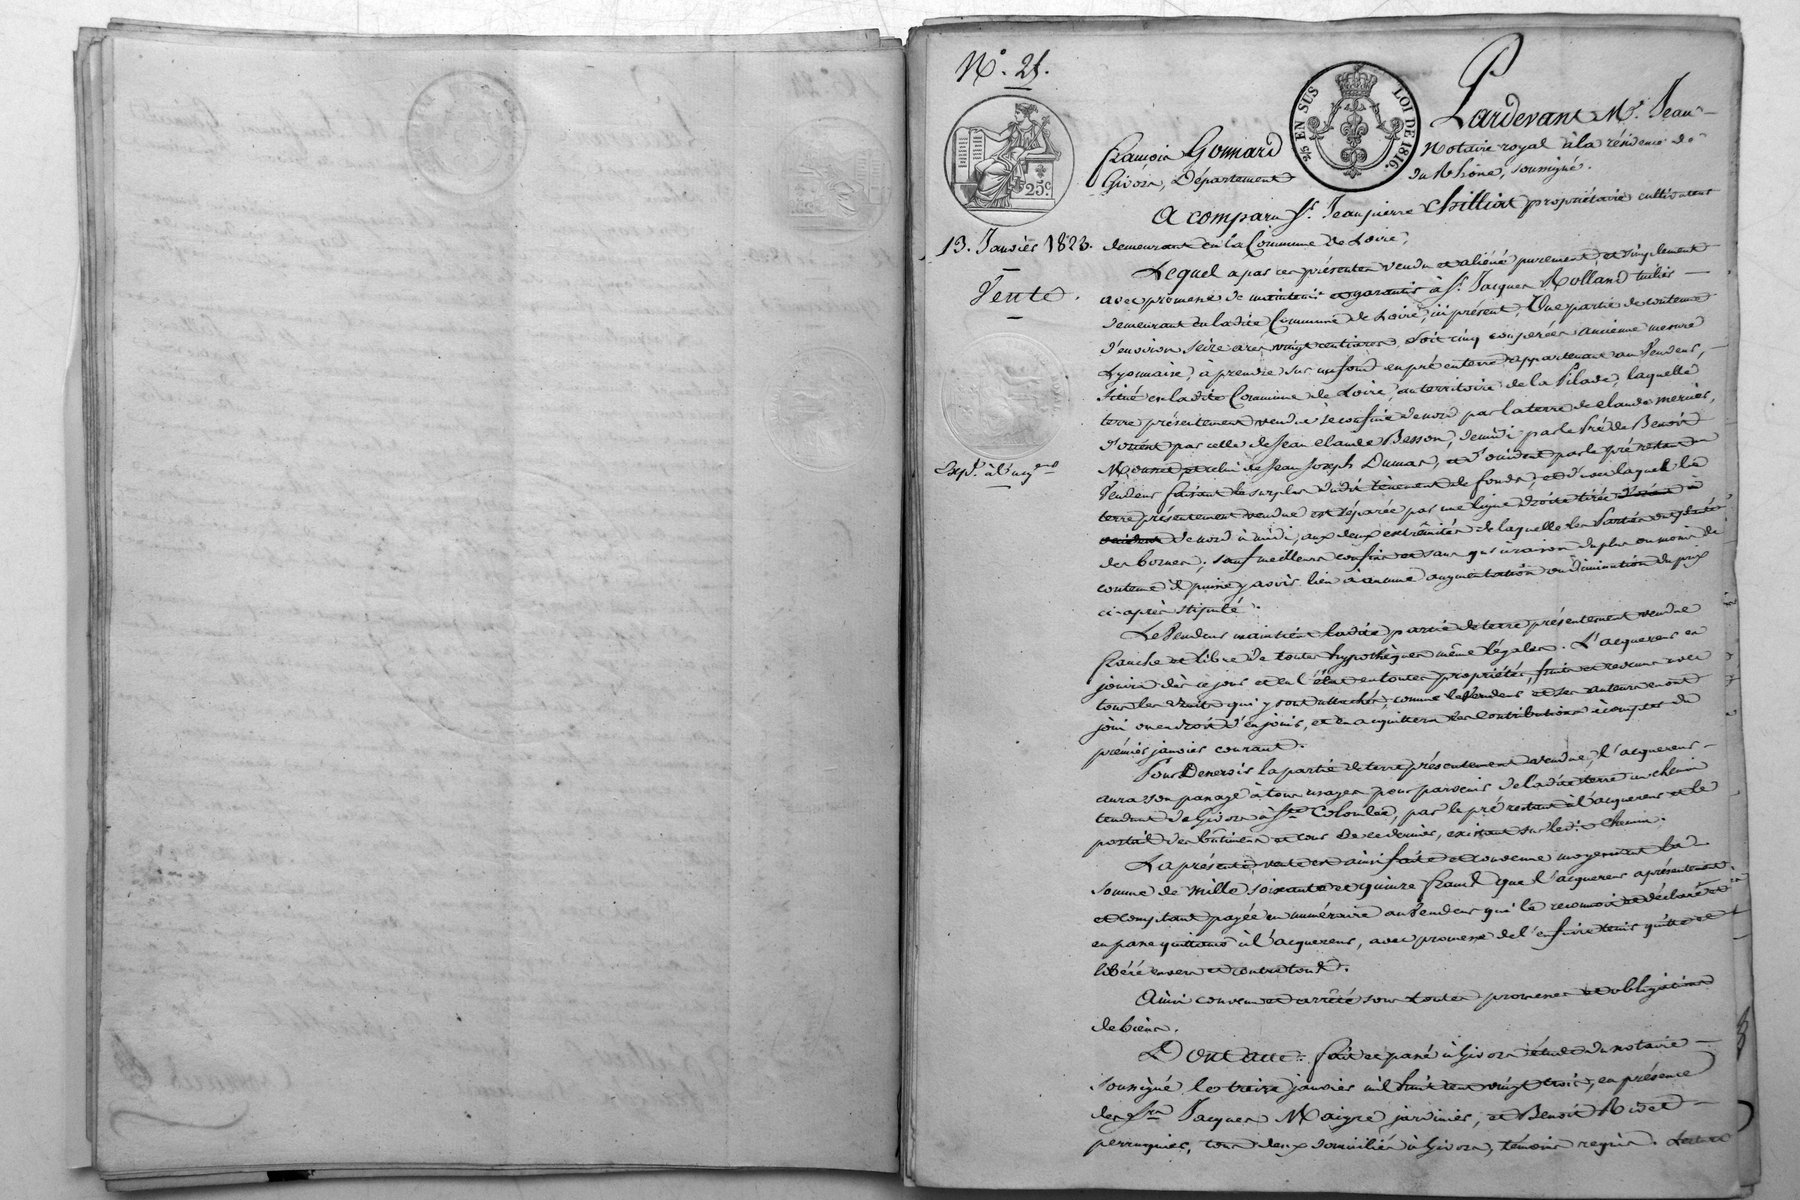 N.º 21.
25 EN SUS LOI DE 1816.
25.c
13. Janvier 1823.
Vente.
Pardevant M.e Jean-
françois Gonnard Notaire royal à la résidence de
Givors, Département du Rhône, soussigné.
A comparu Sr. Jean pierre Chilliat propriétaire cultivateur
demeurant en la Commune de Loire,
Lequel a par ces présentes vendu et aliéné purement et simplement
avec promesse de maintenir et garantir à Sr. Jacques Rolland tuilier
demeurant en ladite Commune de Loire, ici présent, Une partie de contenue
d'environ seize ares vingt centiares, soit cinq couperées ancienne mesure
Lyonnaise, à prendre sur un fond en pré en terre appartenant au Vendeur,
situé en ladite Commune de Loire, au territoire de la Pilade, laquelle
terre présentement vendue se confine de nord par la terre de claude mercier,
d'orient par celle de Jean claude Besson, de midi par le Pré de Benoit
Mousset et celui de Jean Joseph Dumas, et d'occident par le pré restant au
Vendeur faisant le surplus dudit tènement de fonds, et d'avec laquelle la
terre présentement vendue est séparée par une ligne droite tirée
de nord à midi, aux deux extrémités de laquelle les Parties ont planté
des bornes; sauf meilleurs confins et sans qu'à raison du plus ou moins de
contenue il puisse y avoir lieu à aucune augmentation ou diminution du prix
ci-après stipulé.
Le Vendeur maintient ladite partie de terre présentement vendue
franche et libre de toutes hypothèques même légales. L'acquereur en
jouira dès ce jour et en l'état en toutes propriétés, fruits et revenus avec
tous les droits qui y sont attachés, comme le Vendeur et ses auteurs en ont
joui ou en droit d'en jouir, et en acquittera les Contributions à compter du
premier janvier courant.
Pour Desservir la partie de terre présentement vendue, l'acquereur
aura son passage à tous usages pour parvenir de ladite terre au chemin
tendant de Givors à Ste Colombe, par le pré restant à l'acquereur et le
portail des bâtiments et cour de ce dernier, existant sur ledit Chemin.
La présente vente est ainsi faite et convenue moyennant la
somme de mille soixante et quinze francs que l'acquereur a présentement
et comptant payée en numéraire au Vendeur qui la reconnoit et déclare et
en passe quittance à l'acquereur, avec promesse de l'en faire tenir quitte et
libéré envers et contre tous.
Ainsi convenu et arrêté sous toutes promesses et obligations
de biens.
Dont acte: fait et passé à Givors étude du notaire
soussigné le treize janvier mil huit cent vingt trois, en présence
des Srs Jacques Maigre jardinier, et Benoit Ridet
perruquier, tous deux domiciliés à Givors, témoins requis. Lecture